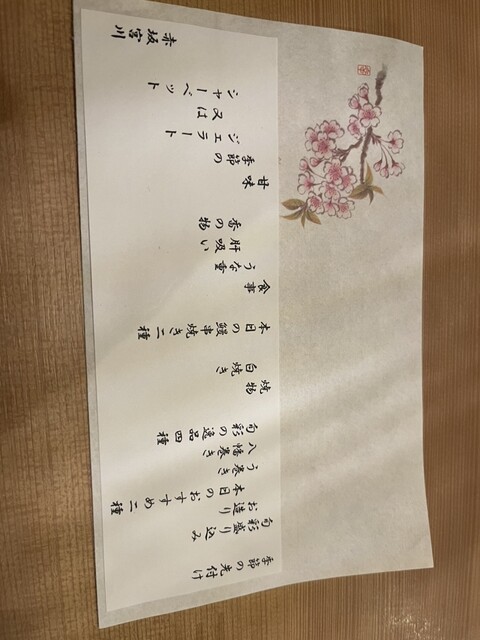 季節の先付け
旬彩盛り込み
お造り
本日のおすすめ二種
う巻き
八幡巻き
旬彩の逸品四種
焼物
白焼き
本日の鰻串焼き二種
食事
うな重
肝吸い
香の物
甘味
季節の
ジェラート
又は
シャーベット
赤坂宮川